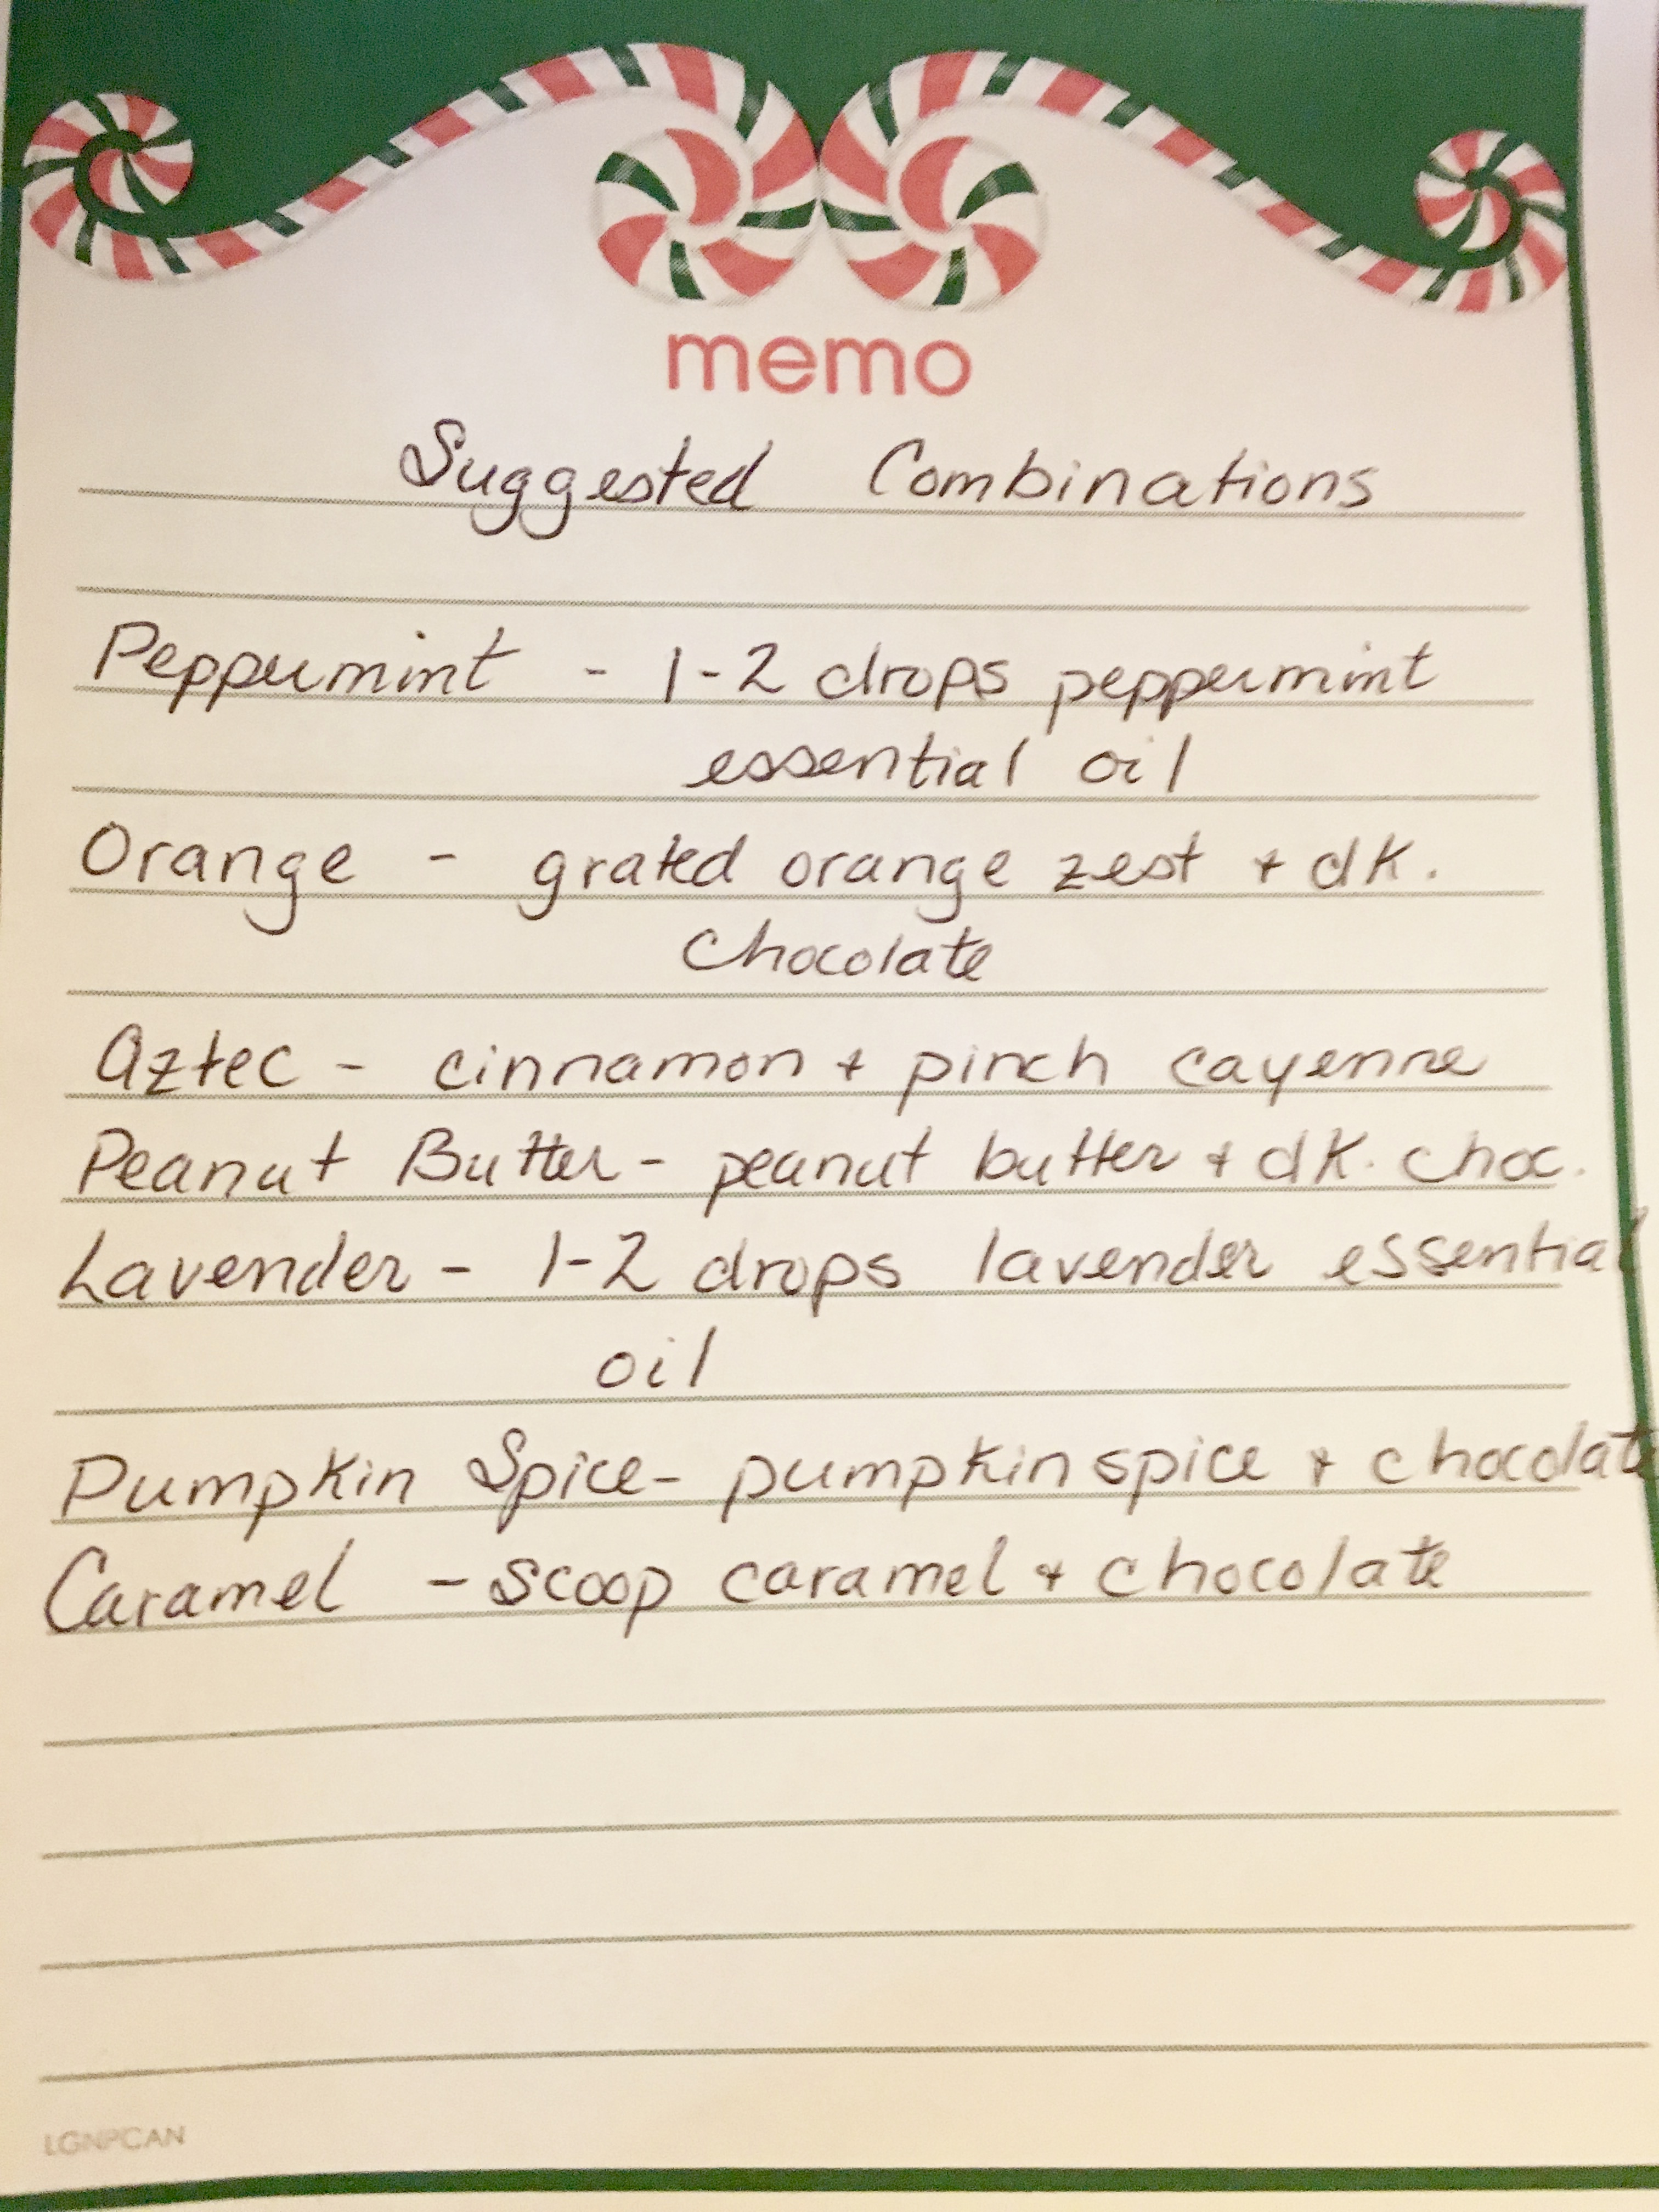 memo
Suggested Combinations
Peppermint - 1-2 drops peppermint
essential oil
Orange - grated orange zest + dk.
Chocolate
Aztec - cinnamon + pinch cayenne
Peanut Butter - peanut butter + dk. choc.
Lavender - 1-2 drops lavender essential
oil
Pumpkin Spice - pumpkin spice + chocolate
Caramel - scoop caramel + chocolate
LGNPCAN